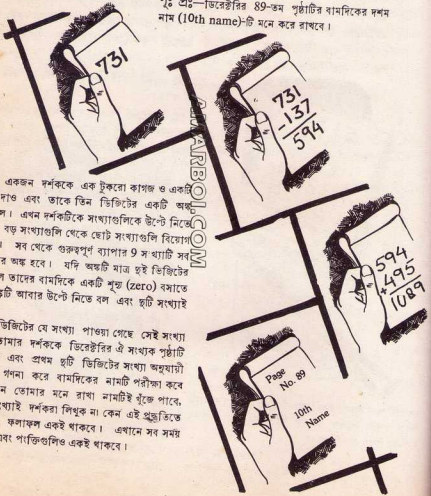 পূঃ প্রঃ—ডিরেক্টরির 89-তম পৃষ্ঠাটির বামদিকের দশম
নাম (10th name)-টি মনে করে রাখবে।
731
731
-137
594
একজন দর্শককে এক টুকরো কাগজ ও একটি
দাও এবং তাকে তিন ডিজিটের একটি অঙ্ক
ল। এখন দর্শকটিকে সংখ্যাগুলিকে উল্টে নিতে
বড় সংখ্যাগুলি থেকে ছোট সংখ্যাগুলি বিয়োগ
। সব থেকে গুরুত্বপূর্ণ ব্যাপার 9 সংখ্যাটি সব
র অঙ্ক হবে। যদি অঙ্কটি মাত্র দুই ডিজিটের
ল তাদের বামদিকে একটি শূন্য (zero) বসাতে
টি আবার উল্টে নিতে বল এবং দুটি সংখ্যাই
594
+495
1089
ডিজিটের যে সংখ্যা পাওয়া গেছে সেই সংখ্যা
তামার দর্শককে ডিরেক্টরির ঐ সংখ্যক পৃষ্ঠাটি
এবং প্রথম দুটি ডিজিটের সংখ্যা অনুযায়ী
গণনা করে বামদিকের নামটি পরীক্ষা কবে
ন তোমার মনে রাখা নামটিই খুঁজে পাবে,
খ্যাই দর্শকরা লিখুক না কেন এই পদ্ধতিতে
ফলাফল একই থাকবে। এখানে সব সময়
এবং পংক্তিগুলিও একই থাকবে।
Page
No. 89
10th
Name
AMARBOI.COM